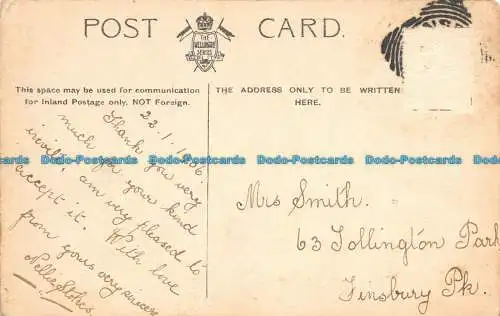 POST CARD.
THE
WELLINGTON
SERIES
This space may be used for communication
for Inland Postage only, NOT Foreign.
THE ADDRESS ONLY TO BE WRITTEN
HERE.
22.1.1906.
Thank you very
much for your kind
invite, am very pleased to
accept it. With love
from yours very sincere
Nellie Stokes.
Mrs Smith.
63 Tollington Park
Finsbury Pk.
Bodo-Postcards Bodo-Postcards Bodo-Postcards Bodo-Postcards